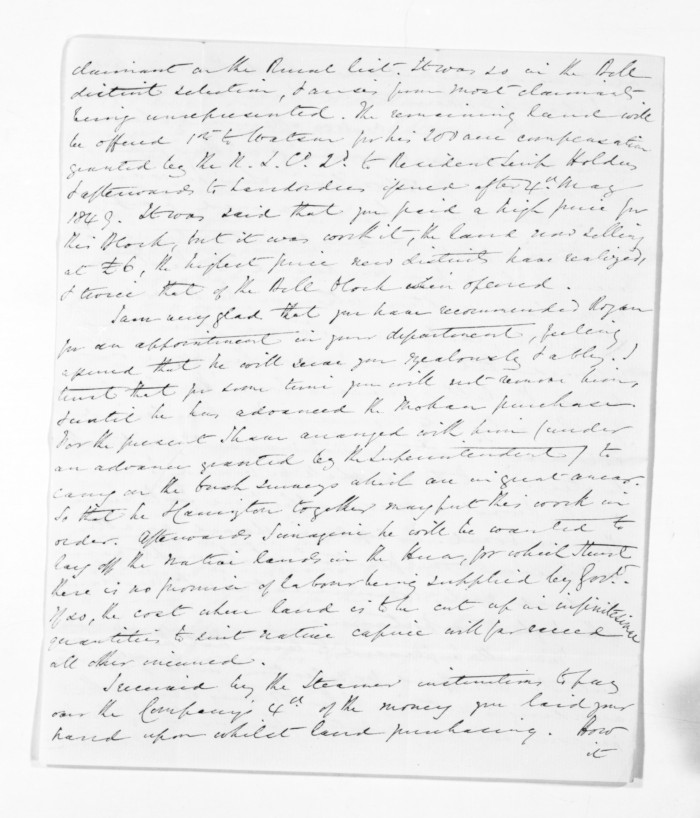 claimant on the Rural list. It was so in the Bell
district selection, & arises from most claimants
being unrepresented. The remaining land will
be offered 1st to Watson for his 200 acre compensation
granted by the N. Z. Cº. 2d. to Resident Scrip Holders
& afterwards to Landorders issued after 4th May
1849. It was said that you paid a high price for
this Block, but it was worth it, the land now selling
at £6, the highest price new districts have realized,
& twice that of the Bell block when opened.
I am very glad that you have recommended Rogan
for an appointment in your department, feeling
assured that he will serve you zealously & ably. I
trust that for some time you will not remove him,
& until he has advanced the Mokau purchase.
For the present I have arranged with him (under
an advance granted by the Superintendent) to
carry on the bush surveys which are in great arrear.
So that he & Carrington together may put this work in
order. Afterwards I imagine he will be wanted to
lay off the Native lands in the Hua, for which I trust
there is no promise of labour being supplied by Govt.
If so, the cost when land is to be cut up in
quantities to suit native caprice will far exceed
all other incurred.
I received by the Steamer instructions to pay
over the Company's 4th of the money you laid your
hand upon whilst land purchasing. How
it